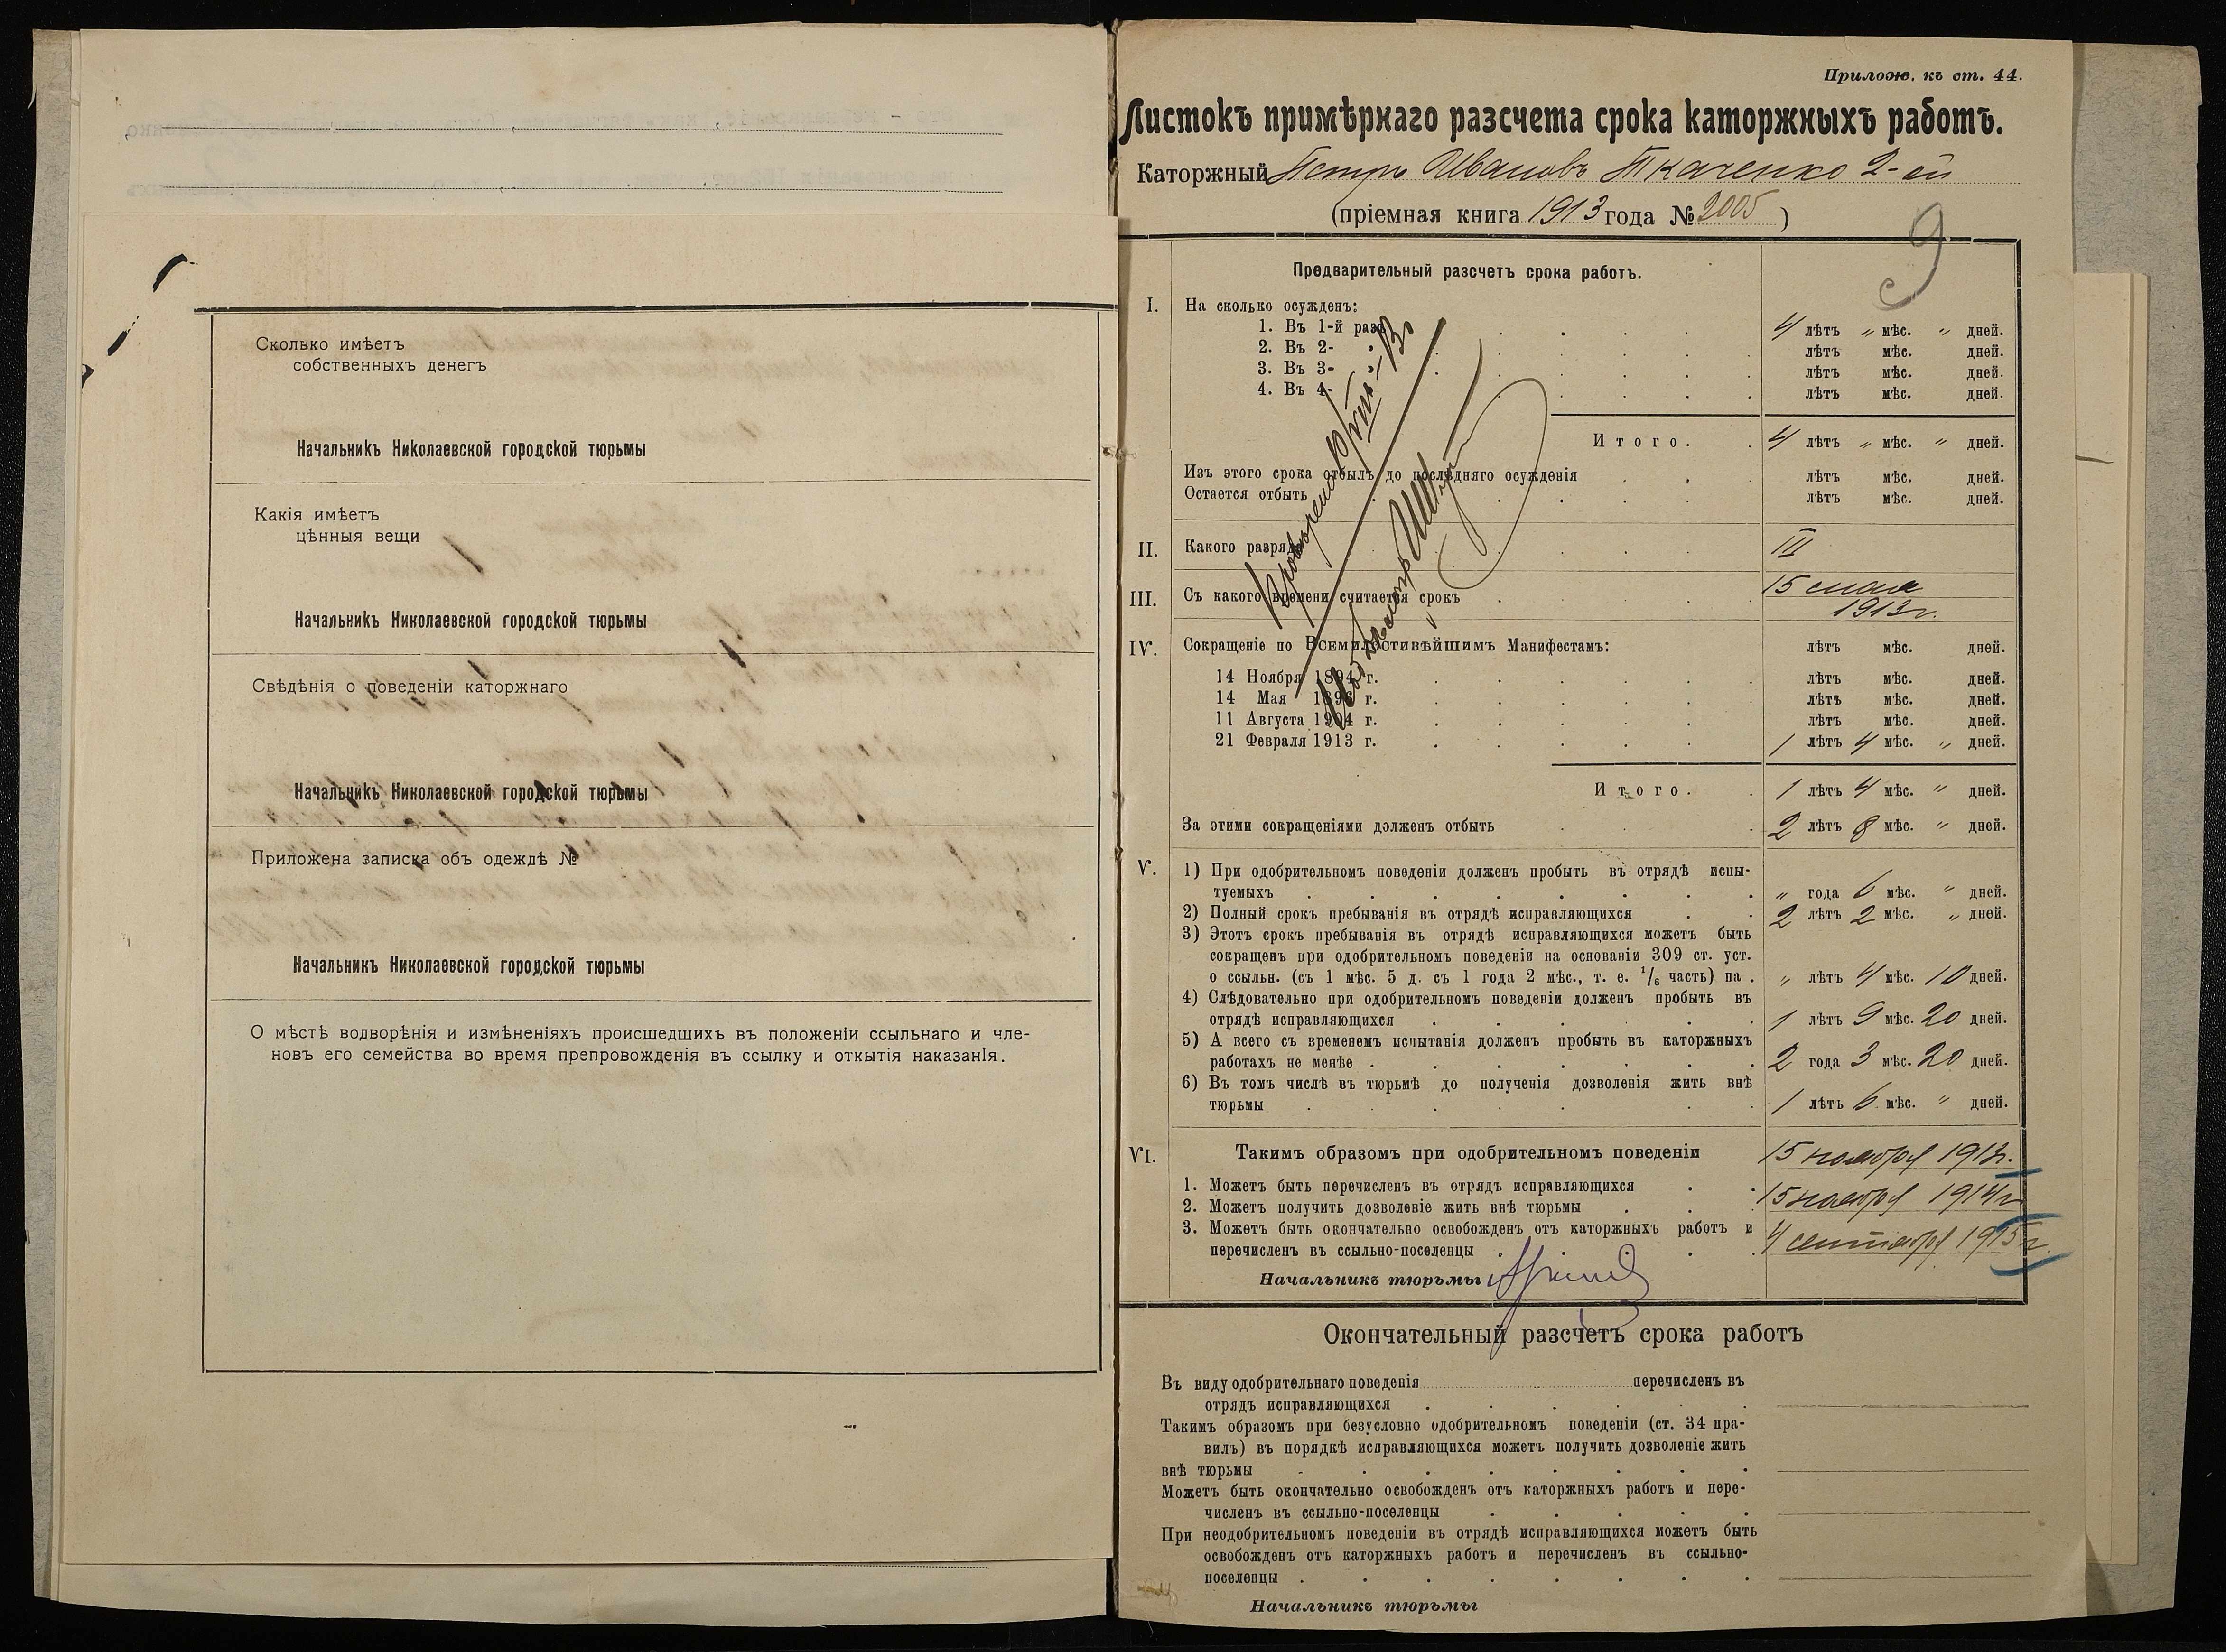 Сколько имѣетъ
собственныхъ денегъ
Начальникъ Николаевской городской тюрьмы
Какія имѣетъ
цѣнныя вещи
Начальникъ Николаевской городской тюрьмы
Свѣдѣнія о поведеніи каторжнаго
Начальникъ Николаевской городской тюрьмы
Приложена записка объ одеждѣ №
Начальникъ Николаевской городской тюрьмы
О мѣстѣ водворѣнія и измѣненіяхъ происшедшихъ въ положеніи ссыльнаго и чле-
новъ его семейства во время препровожденія въ ссылку и открытія наказанія.
Прилож. къ ст. 44.
Листокъ примѣрнаго разсчета срока каторжныхъ работъ.
Каторжный Петръ Ивановъ Ткаченко 2-ой
(пріемная книга 1913 года № 2005)
9
Предварительный разсчетъ срока работъ.
I. На сколько осужденъ:
1. Въ 1-й разъ 4 лѣтъ „ мѣс. „ дней.
2. Въ 2- лѣтъ мѣс. дней.
3. Въ 3- лѣтъ мѣс. дней.
4. Въ 4- лѣтъ мѣс. дней.
Итого. 4 лѣтъ „ мѣс. „ дней.
Изъ этого срока отбылъ до послѣдняго осужденія лѣтъ мѣс. дней.
Остается отбыть лѣтъ мѣс. дней.
II. Какого разряда III
III. Съ какого времени считается срокъ 15 мая
1913 г.
IV. Сокращеніе по Всемилостивѣйшимъ Манифестамъ: лѣтъ мѣс. дней.
14 Ноября 1894 г. лѣтъ мѣс. дней.
14 Мая 1896 г. лѣтъ мѣс. дней.
11 Августа 1904 г. лѣтъ мѣс. дней.
21 Февраля 1913 г. 1 лѣтъ 4 мѣс. „ дней.
Итого. 1 лѣтъ 4 мѣс. „ дней.
За этими сокращеніями долженъ отбыть 2 лѣтъ 8 мѣс. „ дней.
V. 1) При одобрительномъ поведеніи долженъ пробыть въ отрядѣ испы-
туемыхъ „ года 6 мѣс. „ дней.
2) Полный срокъ пребыванія въ отрядѣ исправляющихся 2 лѣтъ 2 мѣс. „ дней.
3) Этотъ срокъ пребыванія въ отрядѣ исправляющихся можетъ быть
сокращенъ при одобрительномъ поведеніи на основаніи 309 ст. уст.
о ссыльн. (съ 1 мѣс. 5 д. съ 1 года 2 мѣс., т. е. 1/6 часть) на . „ лѣтъ 4 мѣс. 10 дней.
4) Слѣдовательно при одобрительномъ поведеніи долженъ пробыть въ
отрядѣ исправляющихся 1 лѣтъ 9 мѣс. 20 дней.
5) А всего съ временемъ испытанія долженъ пробыть въ каторжныхъ
работахъ не менѣе 2 года 3 мѣс. 20 дней.
6) Въ томъ числѣ въ тюрьмѣ до полученія дозволенія жить внѣ
тюрьмы 1 лѣтъ 6 мѣс. „ дней.
VI. Такимъ образомъ при одобрительномъ поведеніи 15 ноября 1913 г.
1. Можетъ быть перечисленъ въ отрядъ исправляющихся
2. Можетъ получить дозволеніе жить внѣ тюрьмы 15 ноября 1914 г
3. Можетъ быть окончательно освобожденъ отъ каторжныхъ работъ и
перечисленъ въ ссыльно-поселенцы 4 сентября 1915 г.
Начальникъ тюрьмы
Окончательный разсчетъ срока работъ
Въ виду одобрительнаго поведенія перечисленъ въ
отрядъ исправляющихся
Такимъ образомъ при безусловно одобрительномъ поведеніи (ст. 34 пра-
вилъ) въ порядкѣ исправляющихся можетъ получить дозволеніе жить
внѣ тюрьмы
Можетъ быть окончательно освобожденъ отъ каторжныхъ работъ и пере-
численъ въ ссыльно-поселенцы
При неодобрительномъ поведеніи въ отрядѣ исправляющихся можетъ быть
освобожденъ отъ каторжныхъ работъ и перечисленъ въ ссыльно-
поселенцы
Начальникъ тюрьмы